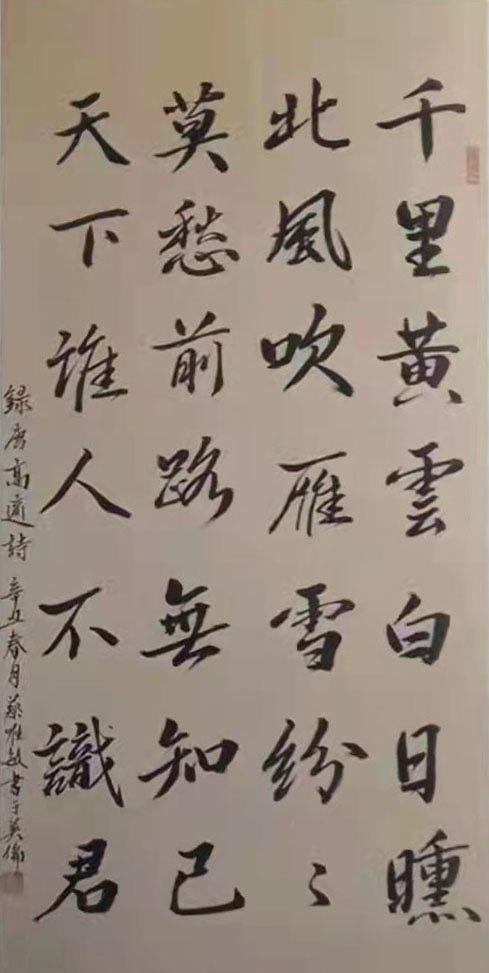 千里黄雲白日曛
北風吹雁雪紛〻
莫愁前路無知己
天下誰人不識君
錄唐高適詩 辛丑春月 書于英倫